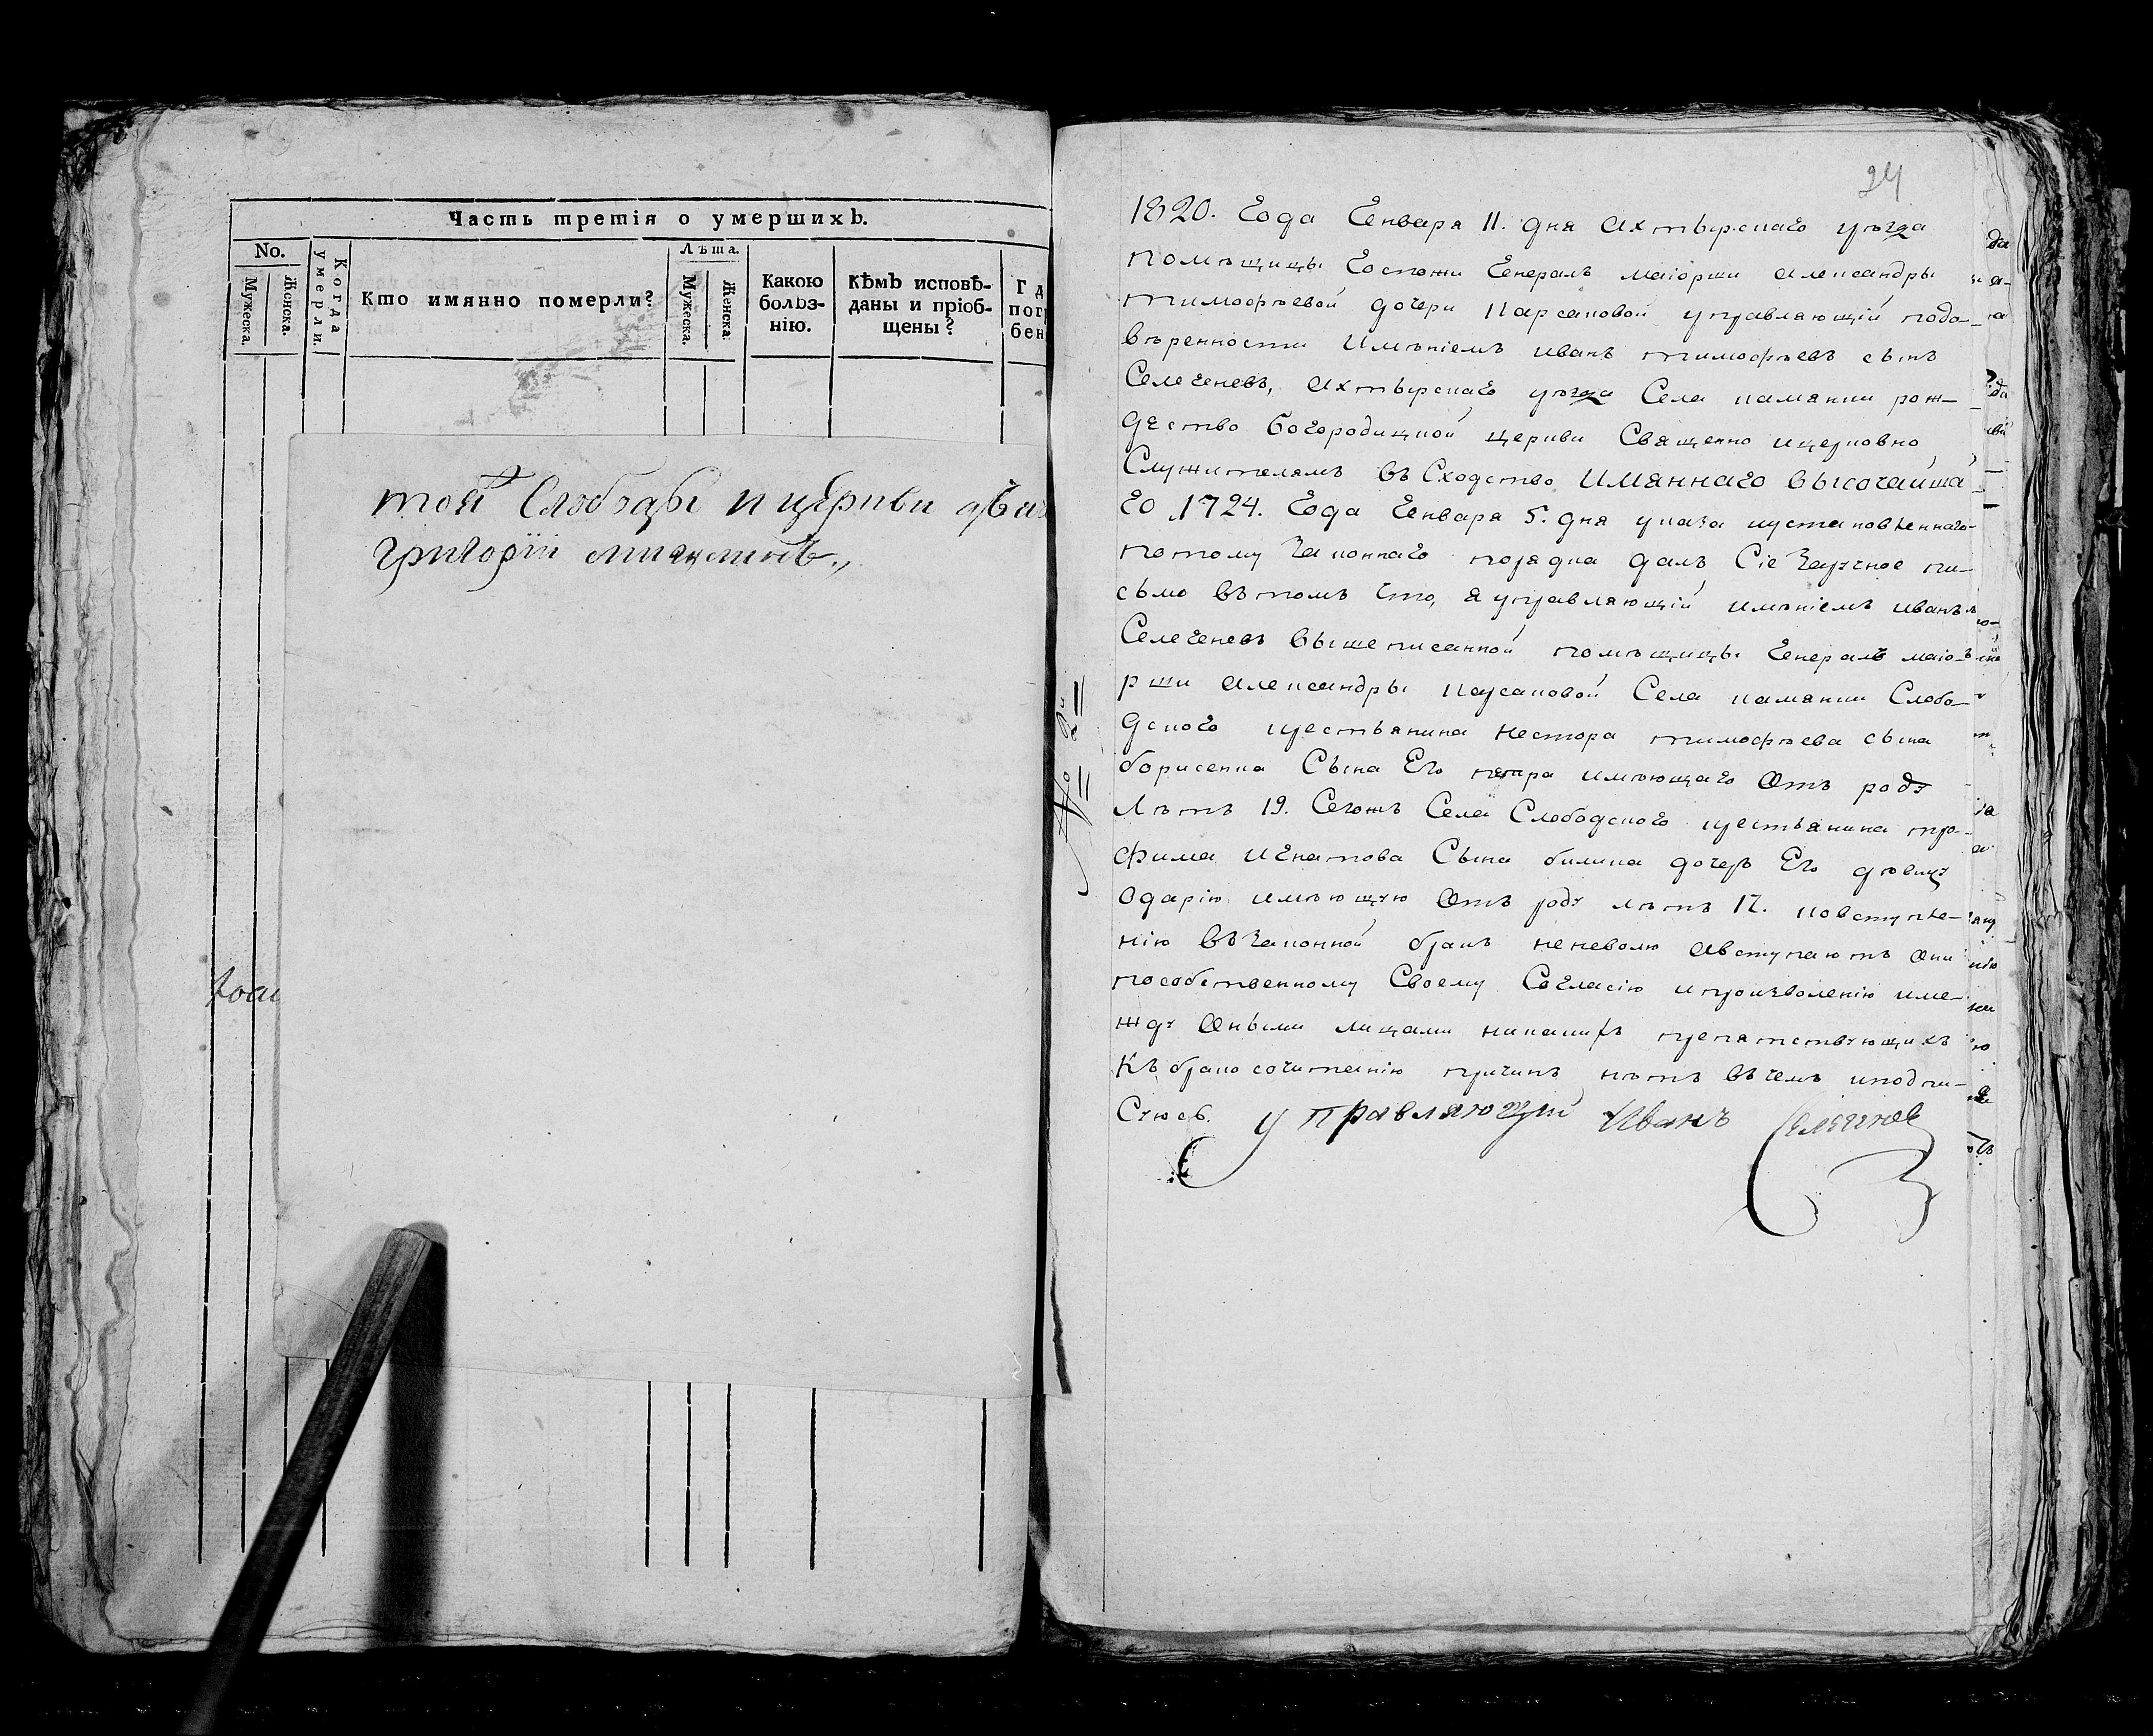 Часть третія о умершихъ.
No.
Мужеска.
Женска.
Когда умерли.
Кто имянно померли?
Лѣта.
Мужеска.
Женска.
Какою
болѣз-
нію.
Кѣмъ исповѣ-
даны и пріоб-
щены?
тоя Слободы и церкви
григорій
24
No 2й
1820. Года Генваря 11. дня Ахтырскаго уезда
Помѣщицы Госпожи Генералъ маіорши Александры
тимофѣевой дочери Карсаковой управляющійподо-
вѣренности Имѣніемъ иванъ тимофѣевъ сынъ
Селегеневъ, Ахтырскаго уезда Села камянки рож-
дество богородицкой церкви Священно ицерковно
Служителямъ въ Сходство Имяннаго высочайша
го 1724. Года Генваря 5. дня указа иустановленнаго
потому Законнаго порядка далъ Сіе Заручное пи-
сьмо втомъ что, я управляющій имѣніемъ иванъ
Селегеневъ вышеписанной помѣщицы Генералъ маіо-
рши Александры Карсаковой Села камянки Слобо-
дского крестьянина Нестора тимофѣева сына
борисенка Сына Его петра имѣющаго Отъ роду
лѣтъ 19. Сегожъ Села Слободского крестьянина тро-
фима игнатова Сына билика дочерь Его дѣвицу
Одарію имѣющую Отъ роду лѣтъ 17. повступле-
нію въ Законной бракъ неневолю Авступаютъ Они
пособственному Своему Согласію ипроизволенію име-
жду Оными лицами никакихъ препятствующихъ
Къ бракосочитанію причинъ нѣтъ въ чемъ иподпи-
Суюсь. управляющій Иванъ Селегенев